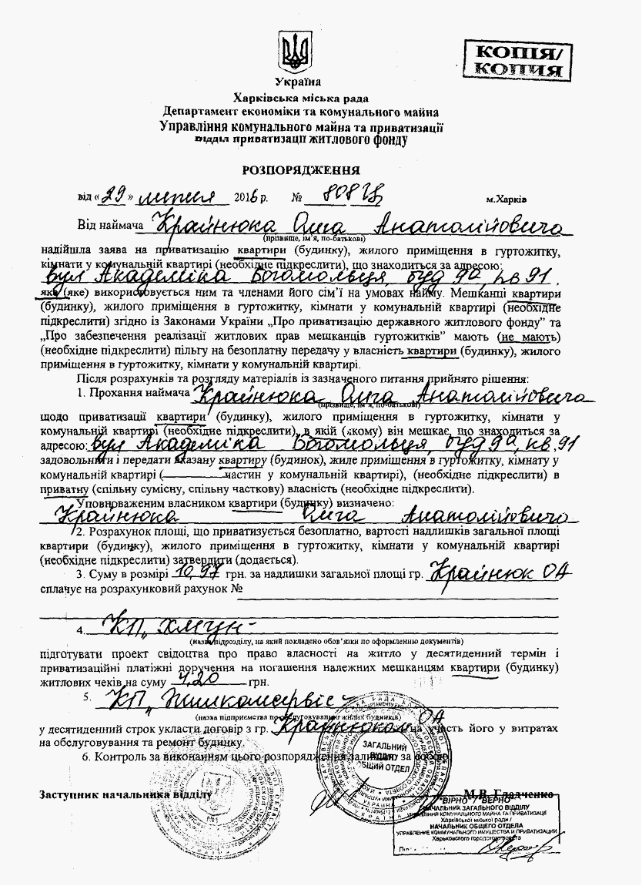 КОПІЯ/
КОПИЯ
Україна
Харківська міська рада
Департамент економіки та комунального майна
Управління комунального майна та приватизації
відділ приватизації житлового фонду
РОЗПОРЯДЖЕННЯ
від « 29 » липня 2016 р. № м.Харків
Від наймача Крайнюка Олега Анатолійовича
(прізвище, ім'я, по-батькові)
надійшла заява на приватизацію квартири (будинку), жилого приміщення в гуртожитку,
кімнати у комунальній квартирі (необхідне підкреслити), що знаходиться за адресою:
вул Академіка Богомольця, буд 9а, кв 91.
яка (яке) використовується ним та членами його сім'ї на умовах найму. Мешканці квартири
(будинку), жилого приміщення в гуртожитку, кімнати у комунальній квартирі (необхідне
підкреслити) згідно із Законами України „Про приватизацію державного житлового фонду" та
„Про забезпечення реалізації житлових прав мешканців гуртожитків" мають (не мають)
(необхідне підкреслити) пільгу на безоплатну передачу у власність квартири (будинку), жилого
приміщення в гуртожитку, кімнати у комунальній квартирі.
Після розрахунків та розгляду матеріалів із зазначеного питання прийнято рішення:
1. Прохання наймача Крайнюка Олега Анатолійовича
(прізвище, ім'я, по-батькові)
щодо приватизації квартири (будинку), жилого приміщення в гуртожитку, кімнати у
комунальній квартирі (необхідне підкреслити), в якій (якому) він мешкає, що знаходиться за
адресою: вул Академіка Богомольця, буд 9а, кв, 91
задовольнити і передати вказану квартиру (будинок), жиле приміщення в гуртожитку, кімнату у
комунальній квартирі ( частин у комунальній квартирі), (необхідне підкреслити) в
приватну (спільну сумісну, спільну часткову) власність (необхідне підкреслити).
Уповноваженим власником квартири (будинку) визначено:
Крайнюка Олега Анатолійовича
2. Розрахунок площі, що приватизується безоплатно, вартості надлишків загальної площі
квартири (будинку), жилого приміщення в гуртожитку, кімнати у комунальній квартирі
(необхідне підкреслити) затвердити (додається).
3. Суму в розмірі 10,97 грн. за надлишки загальної площі гр. Крайнюк ОА
сплачує на розрахунковий рахунок №
4. КП „
(назва підрозділу, на який покладено обов'язки по оформленню документів)
підготувати проект свідоцтва про право власності на житло у десятиденний термін і
приватизаційні платіжні доручення на погашення належних мешканцям квартири (будинку)
житлових чеків на суму 4,20 грн.
5. КП „Жилкомсервіс"
(назва підприємства по обслуговуванню жилих будинків)
у десятиденний строк укласти договір з гр. Крайнюком ОА на участь його у витратах
на обслуговування та ремонт будинку.
6. Контроль за виконанням цього розпорядження залишаю за собою.
ЗАГАЛЬНИЙ
ВІДДІЛ
ОБЩИЙ ОТДЕЛ
Заступник начальника відділу М.В. Гладченко
"ВІРНО / ВЕРНО"
НАЧАЛЬНИК ЗАГАЛЬНОГО ВІДДІЛУ
УПРАВЛІННЯ КОМУНАЛЬНОГО МАЙНА ТА ПРИВАТИЗАЦІЇ
Харківської міської ради /
НАЧАЛЬНИК ОБЩЕГО ОТДЕЛА
УПРАВЛЕНИЕ КОММУНАЛЬНОГО ИМУЩЕСТВА И ПРИВАТИЗАЦИИ
Харьковского городского совета